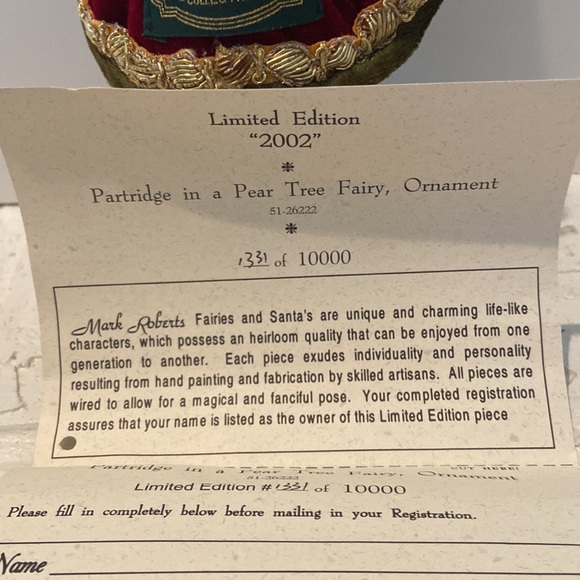 Limited Edition
“2002”
Partridge in a Pear Tree Fairy, Ornament
51-26222
1331 of 10000
Mark Roberts Fairies and Santa's are unique and charming life-like
characters, which possess an heirloom quality that can be enjoyed from one
generation to another. Each piece exudes individuality and personality
resulting from hand painting and fabrication by skilled artisans. All pieces are
wired to allow for a magical and fanciful pose. Your completed registration
assures that your name is listed as the owner of this Limited Edition piece
CUT HERE!
Partridge in a Pear Tree Fairy, Ornament
51-26222
Limited Edition #1331 of 10000
Please fill in completely below before mailing in your Registration.
Name